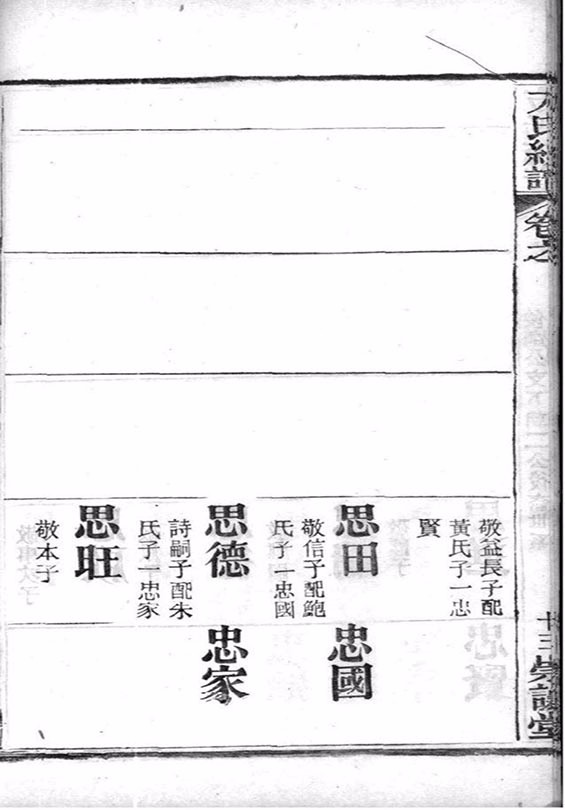 卷之
十三
敬益長子配
黃氏子一忠
賢
思田
敬信子配鮑
氏子一忠國
思德
詩嗣子配朱
氏子一忠家
思旺
敬本子
忠國
忠家